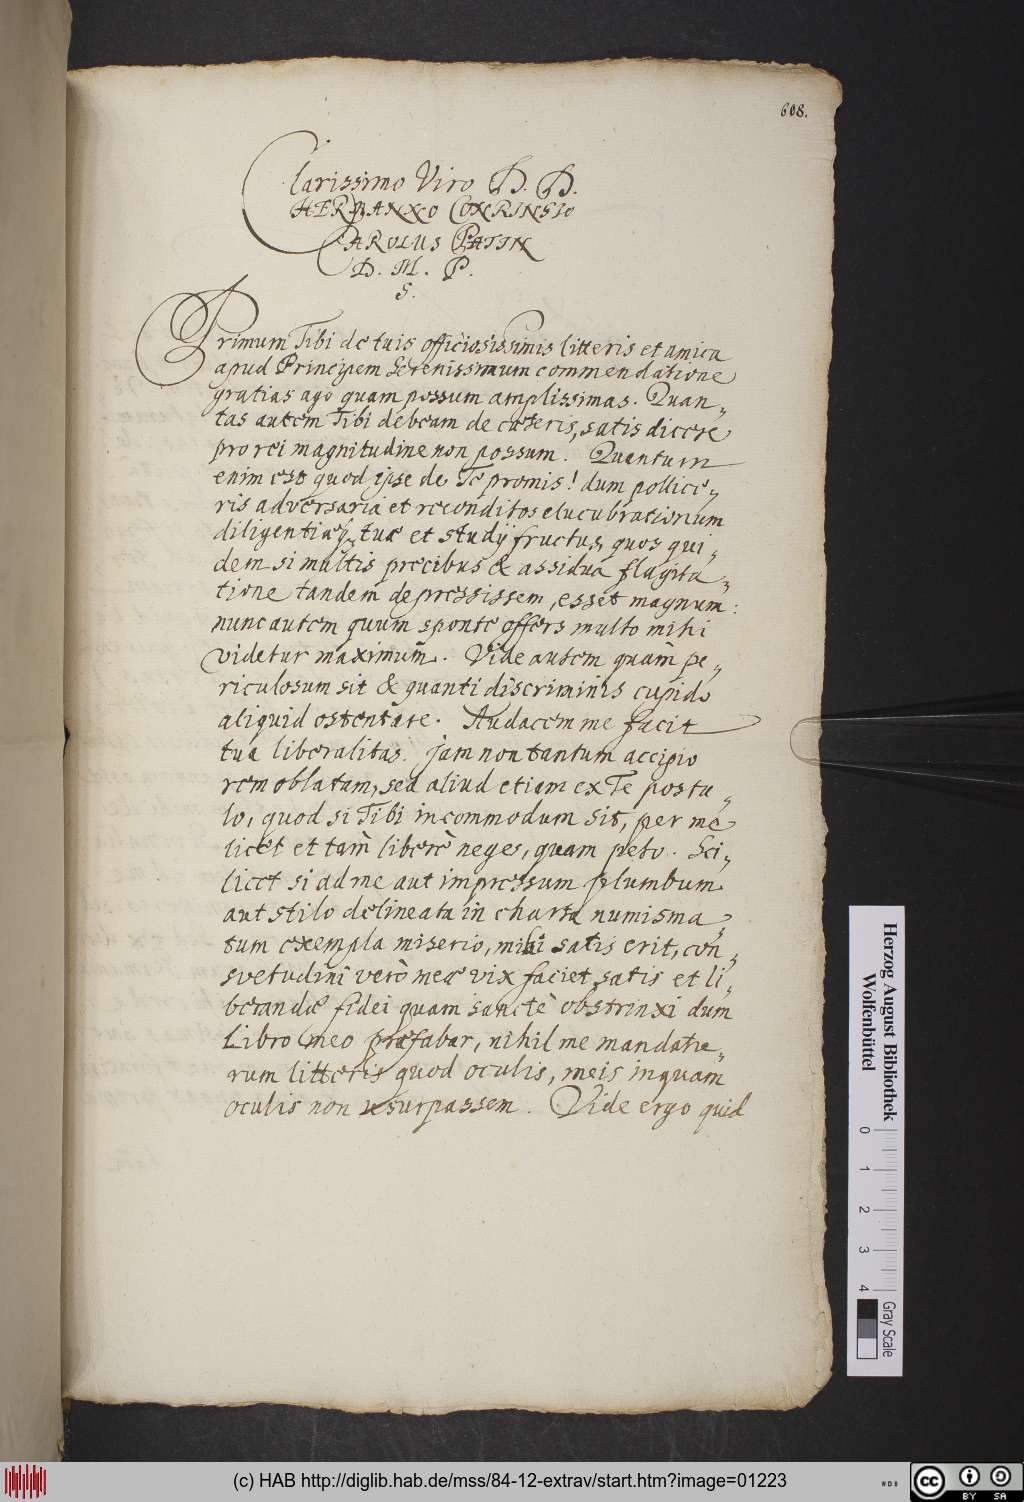 608.
Clarissimo Viro D. D.
HERMANNO CONRINGIO
CAROLUS PATIN
D. M. P.
S.
Primum Tibi de tuis officiosissimis litteris et amica
apud Principem Serenissimum commendatione
gratias ago quam possum amplissimas. Quan„
tas autem Tibi debeam de cæteris, satis dicere
pro rei magnitudine non possum. Quantum
enim est quod ipse de Te promis! dum pollice„
ris adversaria et reconditos elucubrationum
diligentiæq tuæ et studij fructus, quos qui„
dem si multis precibus & assidua flagita„
tione tandem depressissem, esset magnum:
nunc autem quum sponte offers multo mihi
videtur maximum. Vide autem quàm pe„
riculosum sit & quanti discriminis cupido
aliquid ostentare. Audacem me facit
tua liberalitas. jam non tantum accipio
rem oblatam, sed aliud etiam ex Te postu„
lo, quod si Tibi incommodum sit, per me
licet et tam̀ liberè neges, quam peto. Sci„
licet si ad me aut impressum plumbum
aut stilo delineata in charta numisma„
tum exempla miserio, mihi satis erit, con„
svetudini verò meæ vix faciet satis et li„
berandæ fidei quam sanctè obstrinxi dum
Libro meo præfabar, nihil me mandatu„
rum litteris quod oculis, meis inquam
oculis non usurpassem. Vide ergo quid
Herzog August Bibliothek
Wolfenbüttel
0 1 2 3 4
Gray Scale
(c) HAB http://diglib.hab.de/mss/84-12-extrav/start.htm?image=01223
cc BY SA